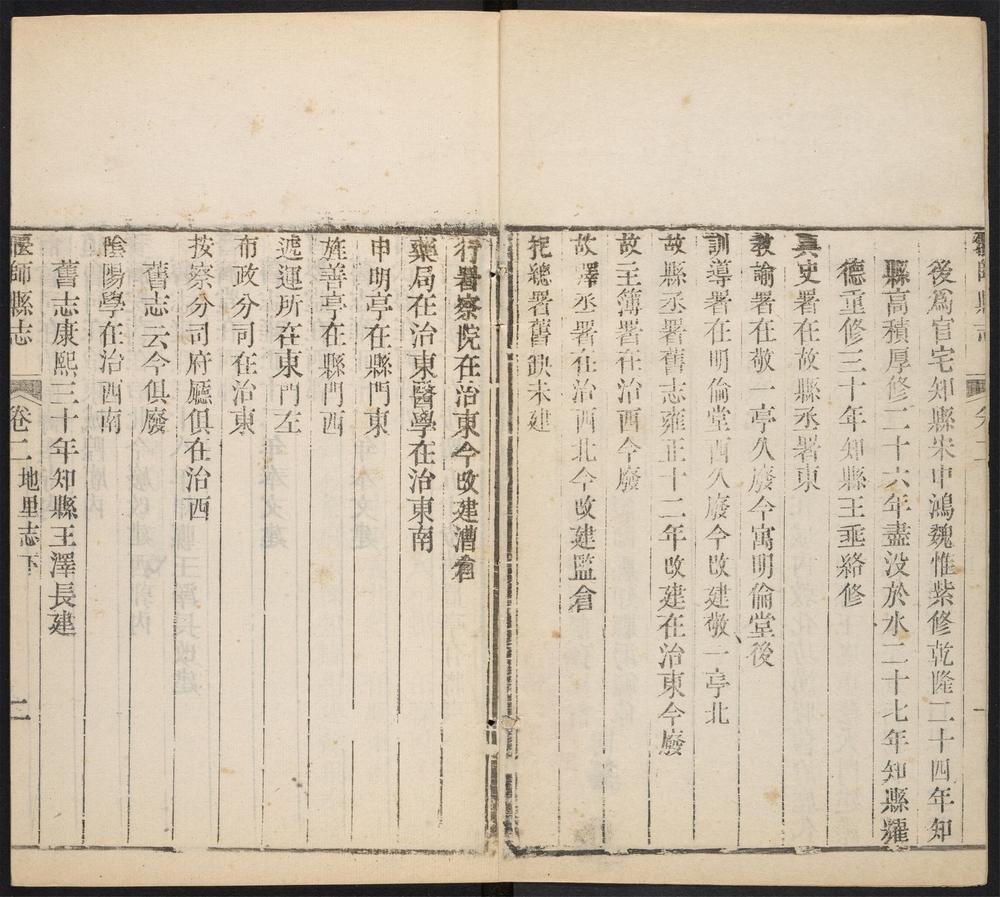 偃師縣志
卷二
後爲官宅知縣朱申鴻魏惟紫修乾隆二十四年知
縣高積厚修二十六年盡没於水二十七年知縣耀
德重修三十年知縣王垂絡修
典史署在故縣丞署東
教諭署在敬一亭久廢今寓明倫堂後
訓導署在明倫堂西久廢今改建敬一亭北
故縣丞署舊志雍正十二年改建在治東今廢
故主簿署在治西今廢
故驛丞署在治西北今改建監倉
把總署舊缺未建
行署察院在治東今改建漕倉
藥局在治東醫學在治東南
申明亭在縣門東
旌善亭在縣門西
遞運所在東門左
布政分司在治東
按察分司府廳俱在治西
舊志云今俱廢
陰陽學在治西南
舊志康熙三十年知縣王澤長建
偃師縣志
卷二
地里志下
二